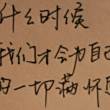 什么时候
我们才会为自己
的一切满怀